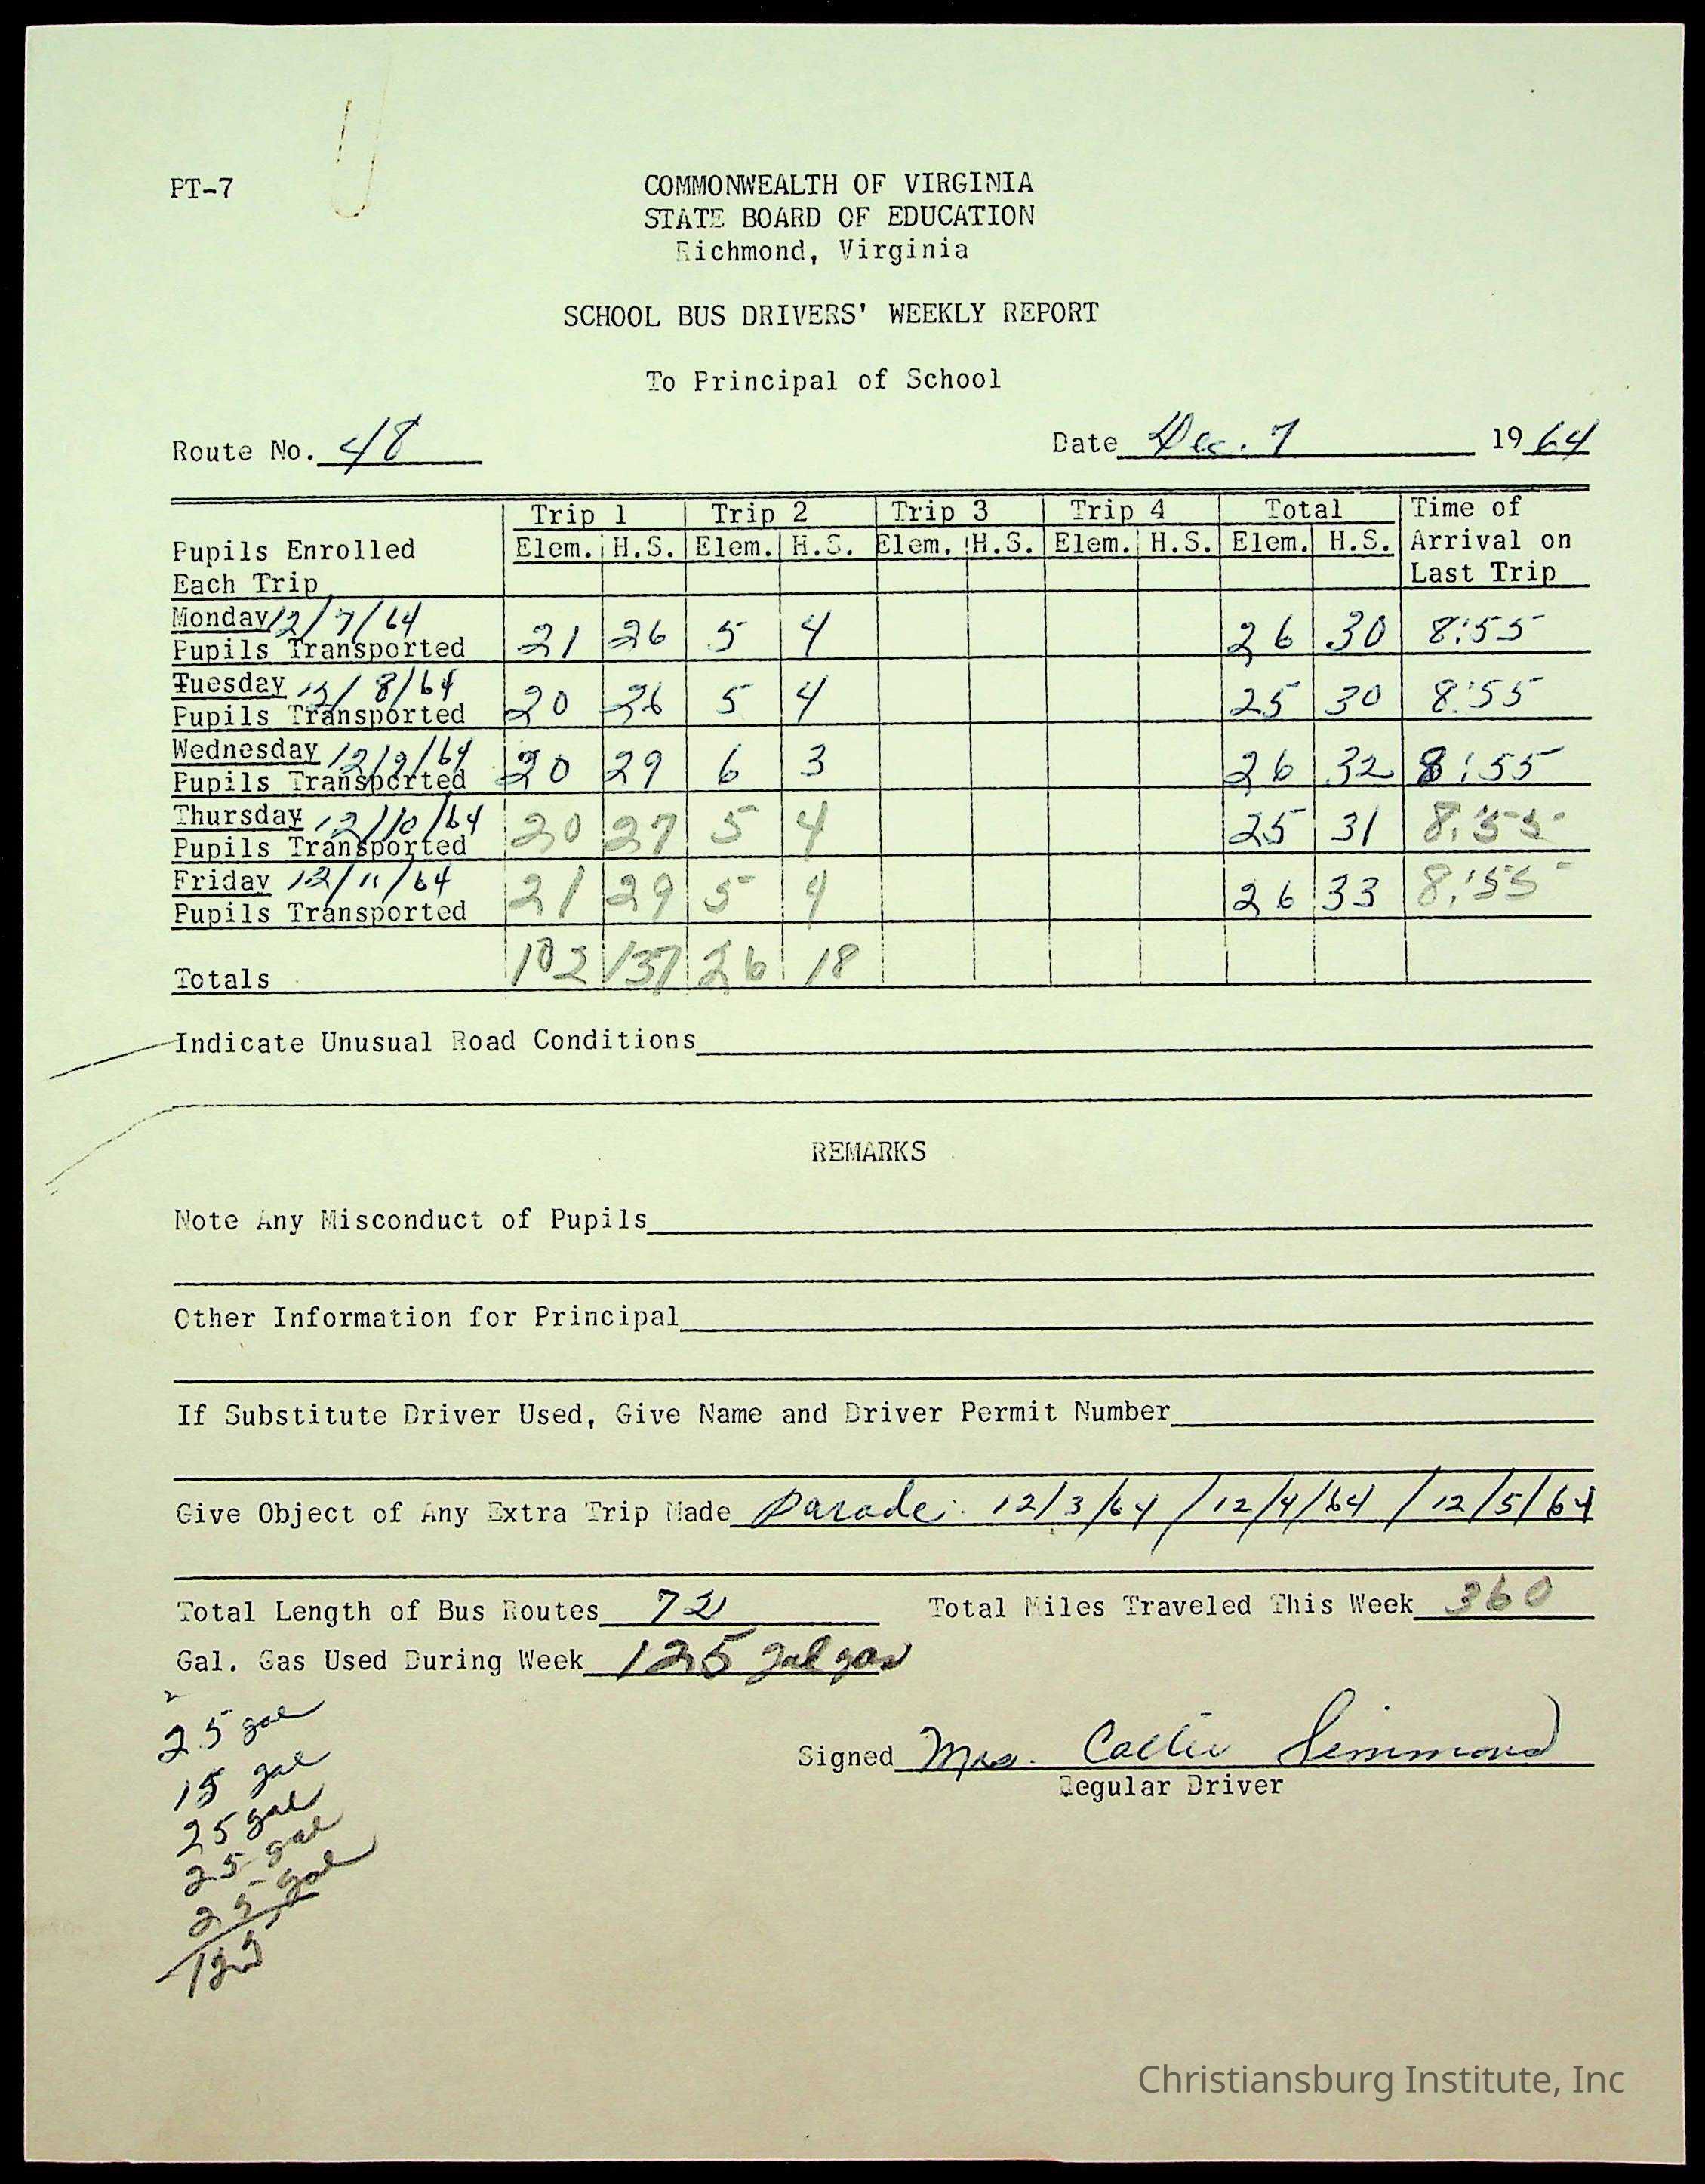 PT-7
COMMONWEALTH OF VIRGINIA
STATE BOARD OF EDUCATION
Richmond, Virginia
SCHOOL BUS DRIVERS' WEEKLY REPORT
To Principal of School
Route No. 48 Date Dec. 7 1964
Trip 1 Trip 2 Trip 3 Trip 4 Total Time of
Pupils Enrolled Elem. H.S. Elem. H.S. Elem. H.S. Elem. H.S. Elem. H.S. Arrival on
Each Trip Last Trip
Monday 12/7/64
Pupils Transported 21 26 5 4 26 30 8:55
Tuesday 12/8/64
Pupils Transported 20 26 5 4 25 30 8:55
Wednesday 12/9/64
Pupils Transported 20 29 6 3 26 32 8:55
Thursday 12/10/64
Pupils Transported 20 27 5 4 25 31 8:55
Friday 12/11/64
Pupils Transported 21 29 5 4 26 33 8:55
Totals 102 137 26 18
Indicate Unusual Road Conditions
REMARKS
Note Any Misconduct of Pupils
Other Information for Principal
If Substitute Driver Used, Give Name and Driver Permit Number
Give Object of Any Extra Trip Made Parade: 12/3/64 / 12/4/64 / 12/5/64
Total Length of Bus Routes 72 Total Miles Traveled This Week 360
Gal. Gas Used During Week 125 gal gas
2
25 gal
15 gal
25 gal
25 gal
25 gal
Signed Mrs. Simmons
Regular Driver
Christiansburg Institute, Inc